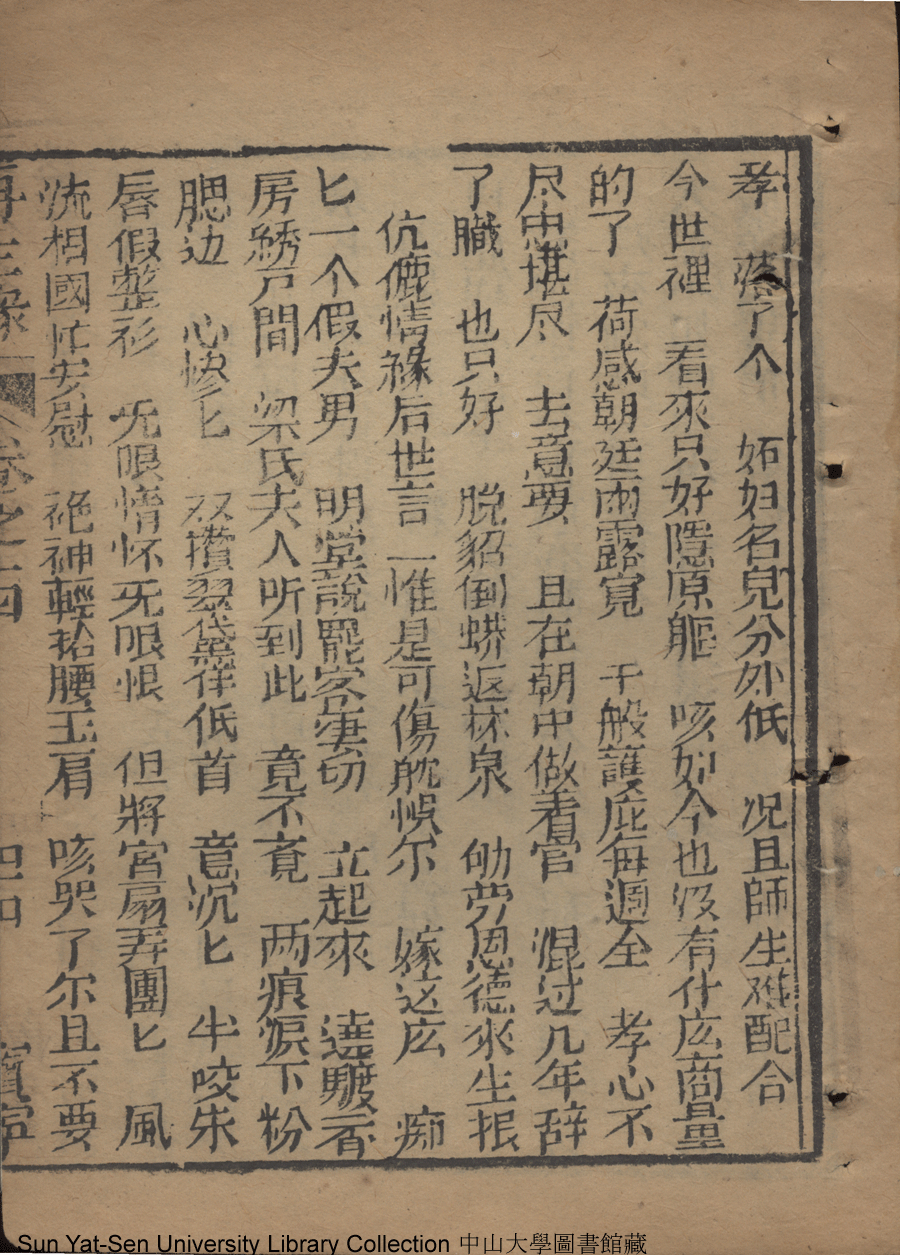 孝 落了个 妬妇名兒分外低 况且師生难配合
今世裡 看來只好隱原軀 咳如今也没有什庅商量
的了 荷感朝廷雨露寛 千般護庇每週全 孝心不
尽忠堪尽 去意要 且在朝中做看官 混过几年辞
了職 也只好 脱貂倒蟒返林泉 劬劳恩德來生报
伉儷情緣后世言 一惟是可傷躭悞尔 嫁这庅 痴
匕一个假夫男 明堂說罷容凄切 立起來 遶驟香
房綉户間 梁氏夫人听到此 竟不竟 两痕淚下粉
腮边 心惨匕 双攢翠黛佯低首 意沉匕 半咬朱
唇假整衫 无限情怀无限恨 但將宮扇弄團匕 風
流相國忙安慰 袍神輕拈腰玉肩 咳哭了尔且不要
再生緣 卷之十四
Sun Yat-Sen University Library Collection 中山大學圖書館藏